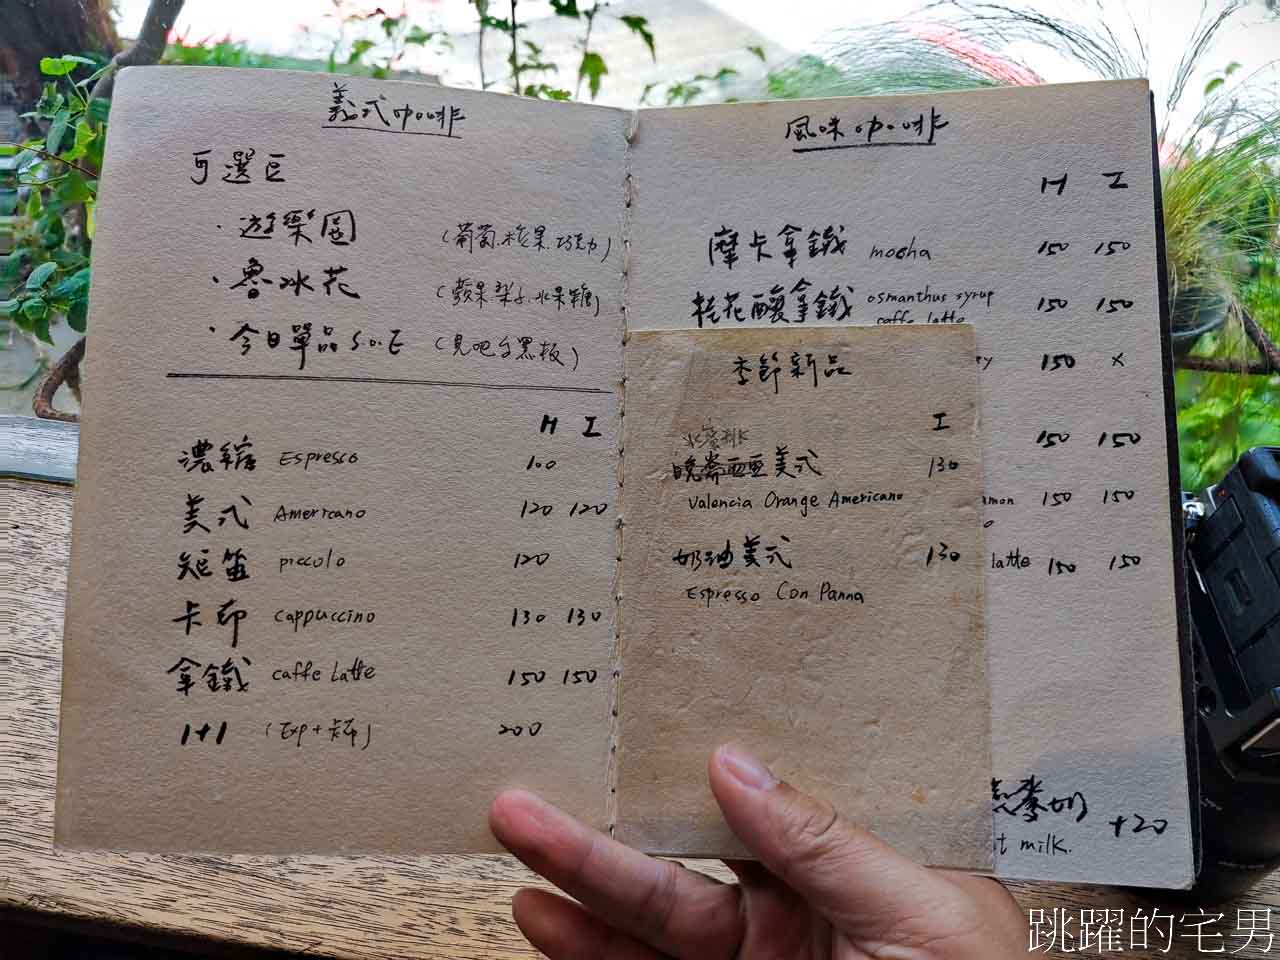 義式咖啡
可選豆
·遊樂園 (葡萄.核果.巧克力)
·魯冰花 (蘋果.梨子.水果糖)
·今日單品 S.O.E (見吧台黑板)
H I
濃縮 Espresso 100
美式 Americano 120 120
短笛 piccolo 120
卡布 cappuccino 130 130
拿鐵 caffe Latte 150 150
1+1 (Exp+卡布) 200
風味咖啡
H I
摩卡拿鐵 mocha 150 150
桂花釀拿鐵 osmanthus syrup 150 150
caffe latte
150 x
150 150
150 150
latte 150 150
燕麥奶 +20
milk.
季節新品
I
晚崙西亞美式 130
Valencia Orange Americano
奶油美式 130
Espresso Con Panna
跳躍的宅男